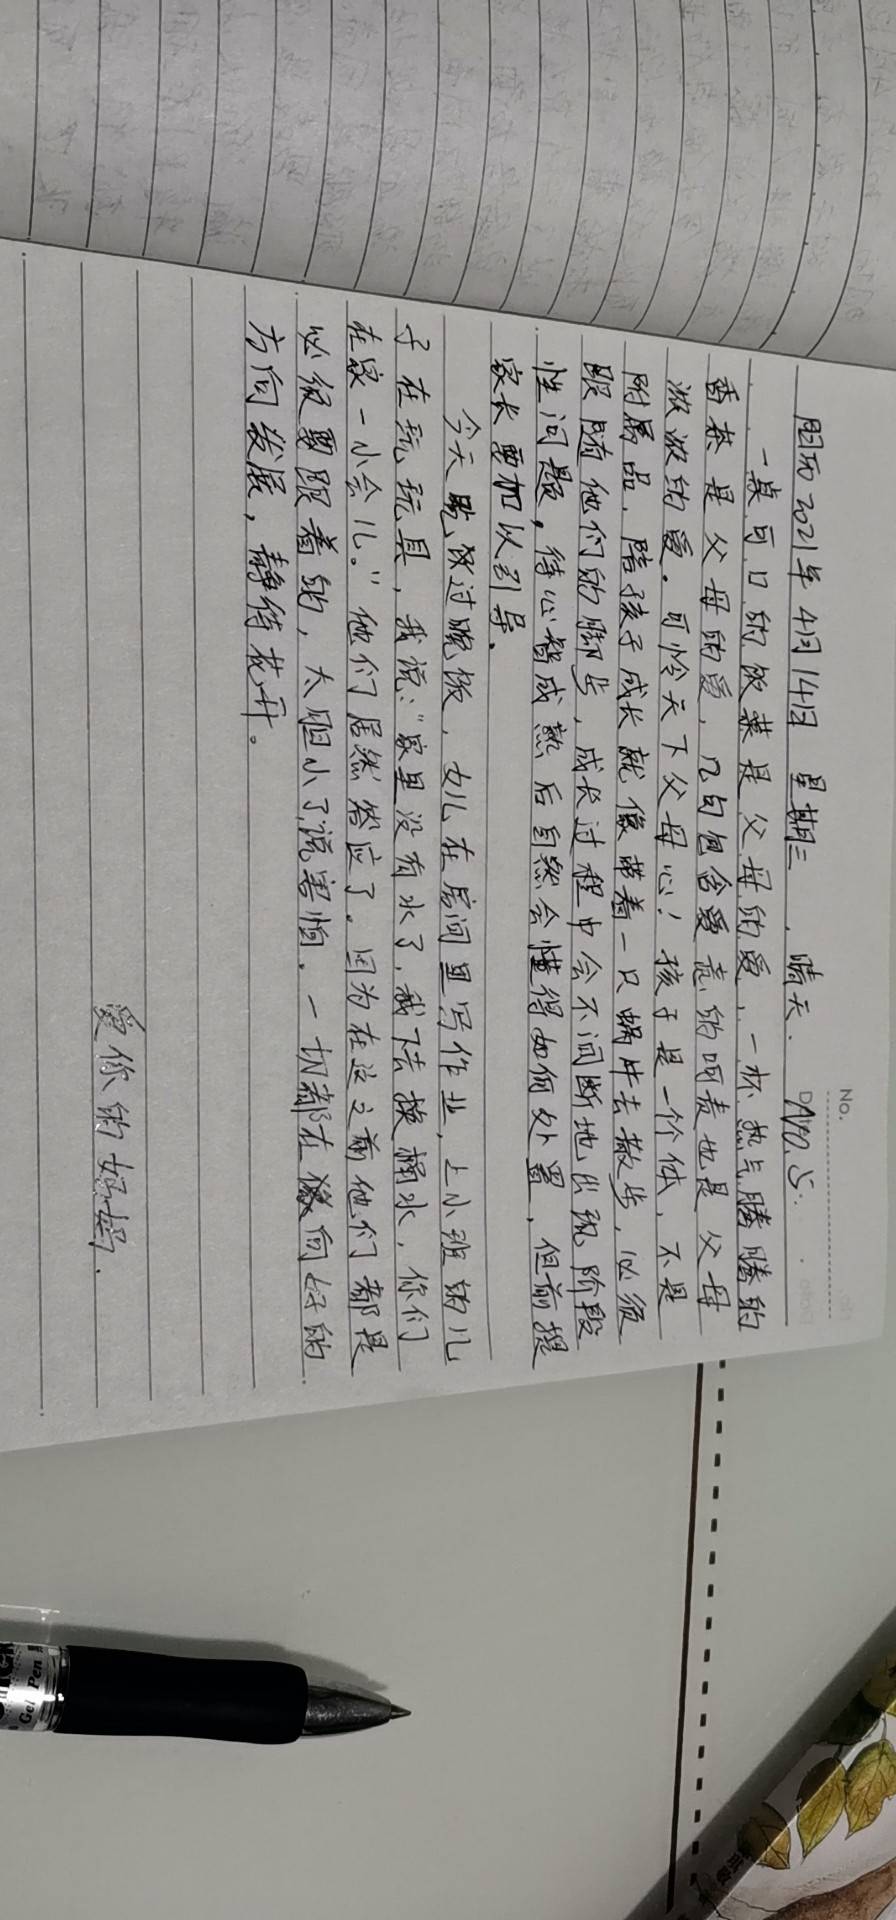 No.
2021年 4月14日 星期三 . 晴天.
一桌可口的饭菜是父母的爱、一杯热气腾腾的
香茶是父母的爱，几句包含爱意的呵责也是父母
浓浓的爱。可怜天下父母心！孩子是一个体，不是
附属品、陪孩子成长就像带着一只蜗牛去散步，必须
跟随他们的脚步，成长过程中会不间断地出现阶段
性问题，待心智成熟后自然会懂得如何处置，但前提
家长要加以引导。
今天晚饭过晚饭，女儿在房间里写作业，上小班的儿
子在玩玩具，我说："家里没有水了，我下去换桶水，你们
在家一小会儿。"他们居然答应了。因为在这之前他们都是
必须要跟着的，太胆小了说害怕。一切都在像向好的
方向发展，静待花开。
爱你的妈妈.
Gel Pen